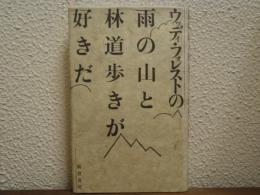 ウッディ・フォレストの
雨の山と
林道歩きが
好きだ